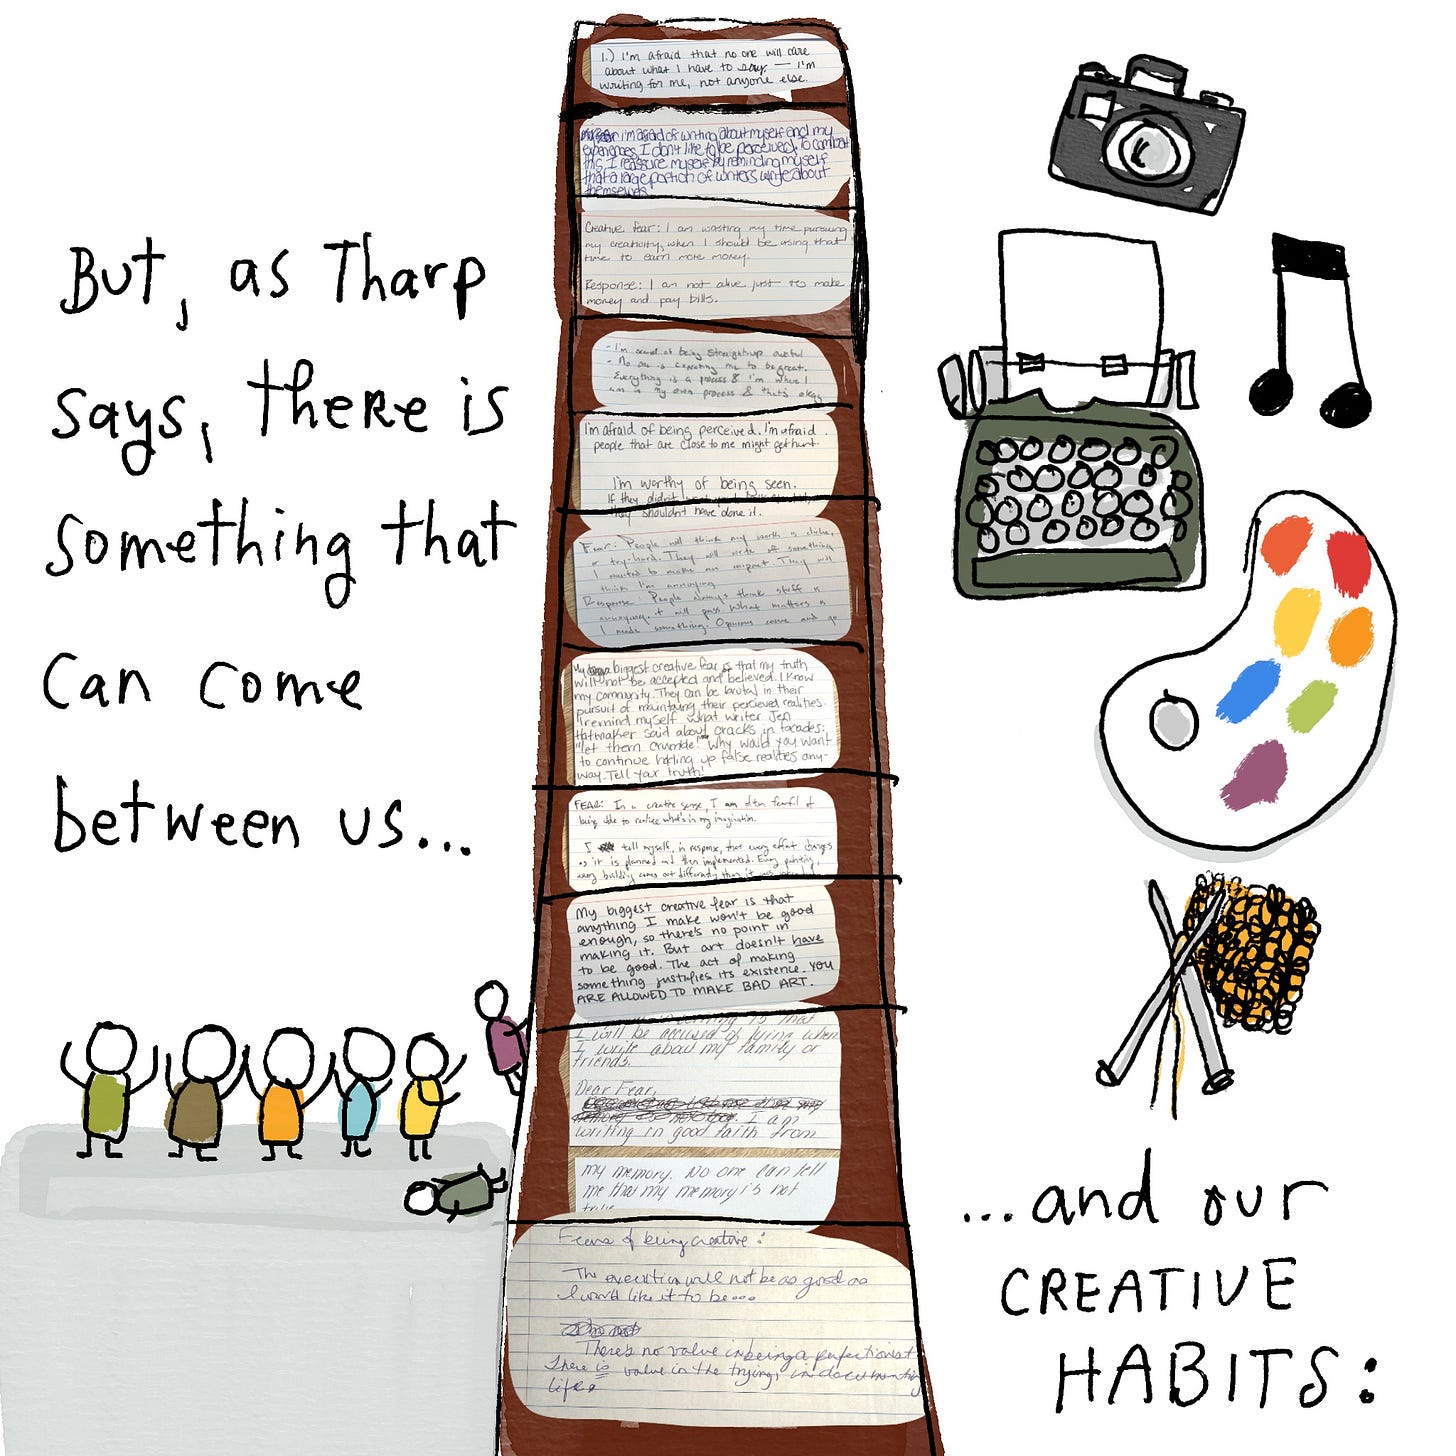 But, as Tharp
says, there is
something that
can come
between us...
1.) I'm afraid that no one will care
about what I have to say. — I'm
writing for me, not anyone else.
i'm afraid of writing about myself and my
experiences. I don't like to be perceived. To combat
this, I reassure myself by reminding myself
that a large portion of writers write about
themselves.
Creative fear: I am wasting my time pursuing
my creativity, when I should be using that
time to earn more money.
Response: I am not alive just to make
money and pay bills.
- I'm scared of being straight up awful
- No one is expecting me to be great.
Everything is a process & I'm where I
am in my own process & that's okay
I'm afraid of being perceived. I'm afraid
people that are close to me might get hurt.
I'm worthy of being seen.
If they didn't
they shouldn't have done it.
Fear: People will think my work is cliche,
or try-hard. They will write off something
I wanted to make an impact. They will
think I'm annoying
Response: People always think stuff is
annoying. it will pass. What matters is
I made something. Opinions come and go
My biggest creative fear is that my truth
will not be accepted and believed. I know
my community. They can be brutal in their
pursuit of maintaining their percieved realities.
I remind myself what writer Jen
Hatmaker said about cracks in facades:
"let them crumble!" Why would you want
to continue holding up false realities any-
way. Tell your truth!
FEAR: In a creative sense, I am often fearful of
being able to realize what's in my imagination.
I tell myself, in response, that every effort changes
as it is planned and then implemented. Every painting,
every building comes out differently than it was
My biggest creative fear is that
anything I make won't be good
enough, so there's no point in
making it. But art doesn't have
to be good. The act of making
something justifies its existence. YOU
ARE ALLOWED TO MAKE BAD ART.
is that
I will be accused of lying when
I write about my family or
friends.
Dear Fear,
I am
writing in good faith from
my memory. No one can tell
me that my memory is not
Fears of being creative:
The execution will not be as good as
I would like it to be...
There's no value in being a perfectionist
There is value in the trying, in documenting
life.
...and our
CREATIVE
HABITS: